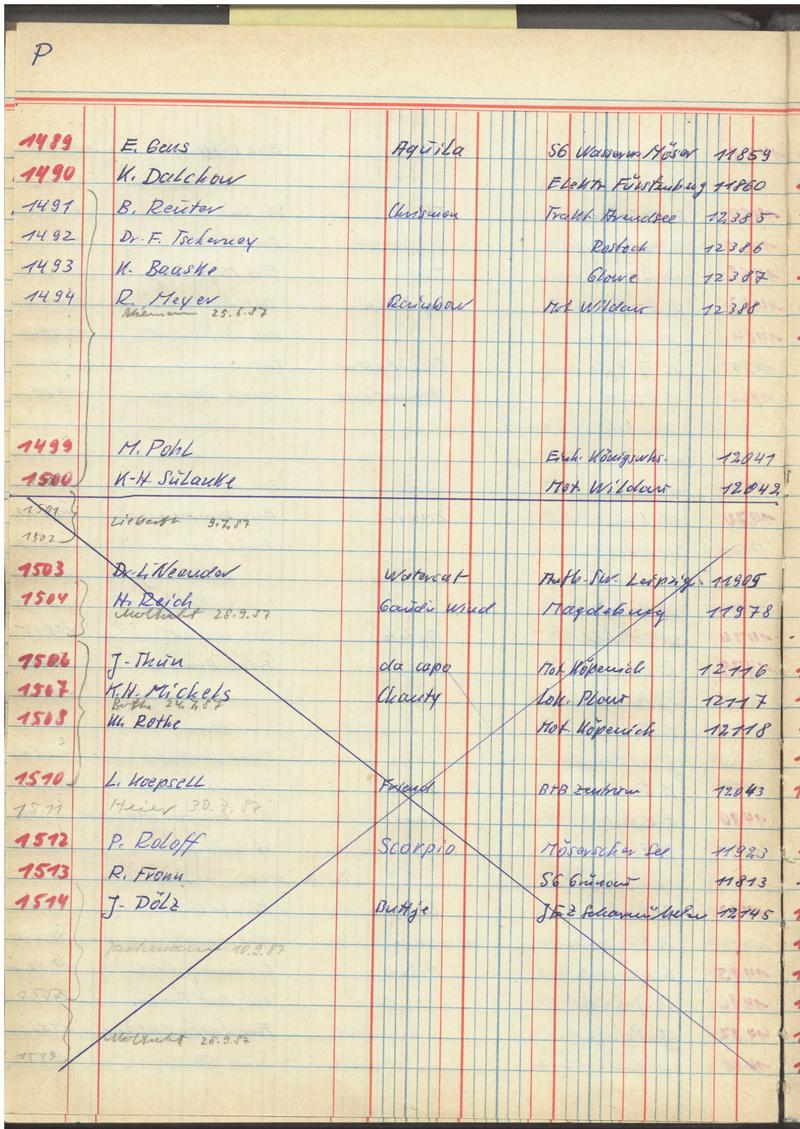 P
1489 E. Gens Aquila SG Wasserm. Möser 11859
1490 K. Dalchow Elektr. Fürstenberg 11860
1491 B. Reuter Trakt. Arendsee 12385
1492 Dr. F. Tscherney Rostock 12386
1493 K. Baaske Glowe 12387
1494 R. Meyer Rainbow Mot. Wildau 12388
25.6.87
1499 M. Pohl Einh. Königswhs. 12041
1500 K-H. Sulanke Mot. Wildau 12042
1501
9.7.87
1502
1503 Dr. L. Neander Watercat Leipzig 11905
1504 H. Reich Gaudi Wind Magdeburg 11978
28.9.87
1506 J. Thun da capo Mot. Köpenick 12116
1507 K.H. Michels Charity Lok. Plaue 12117
1508 Rothe Mot. Köpenick 12118
1510 L. Koepsell Friend BVB Zentrum 12043
1511 Heier 30.7.87
1512 P. Roloff Scorpio Möserscher See 11923
1513 R. Fromm SG Grünau 11813
1514 J. Dölz Buttje 12145
10.9.87
1517
28.9.87
1519